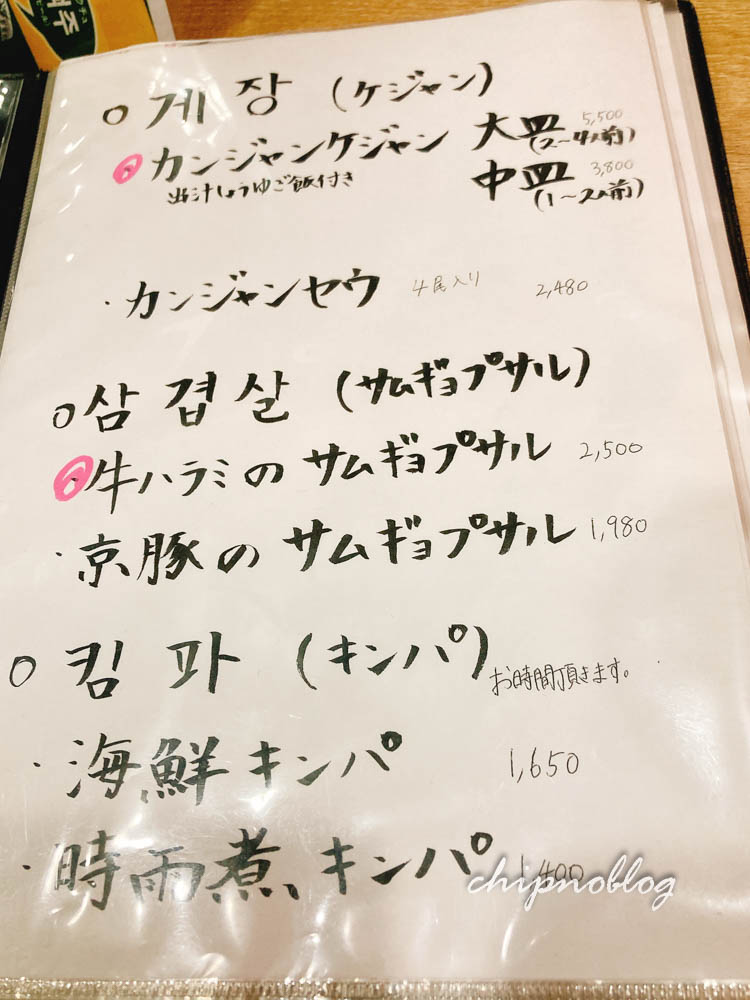 맥주
ビール
○ 게장 (ケジャン)
カンジャンケジャン 大皿 5,500
(2〜4人前)
出汁しょうゆご飯付き 中皿 3,800
(1〜2人前)
・カンジャンセウ 4尾入り 2,480
○삼겹살 (サムギョプサル)
・牛ハラミのサムギョプサル 2,500
・京豚のサムギョプサル 1,980
○ 킴파 (キンパ) お時間頂きます。
・海鮮キンパ 1,650
・時雨煮、キンパ 1,400
chipnoblog